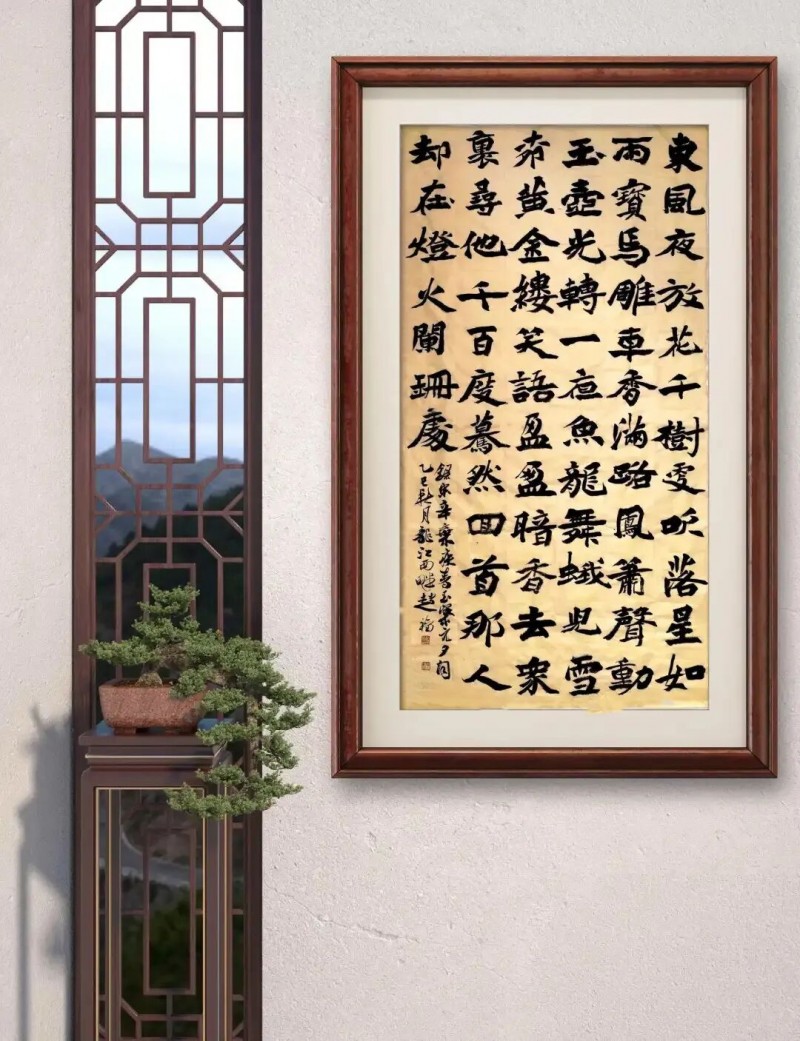 東風夜放花千樹更吹落星如
雨寶馬雕車香滿路鳳簫聲動
玉壺光轉一夜魚龍舞蛾兒雪
柳黄金縷笑語盈盈暗香去衆
裏尋他千百度驀然回首那人
却在燈火闌珊處
錄宋辛棄疾青玉案元夕詞
乙巳秋月龍江西畔趙